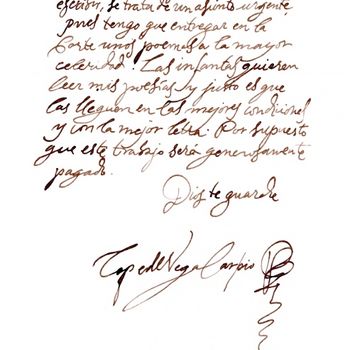 escrivir, se trata de un asunto urgente,
pues tengo que entregar en la
Corte unos poemas a la mayor
celeridad. Las infantas quieren
leer mis poesias y justo es que
las lleguen en las mejores condiciones
y con la mejor letra. Por supuesto
que este trabajo será generosamente
pagado.
Dios te guarde
Lope de Vega Carpio